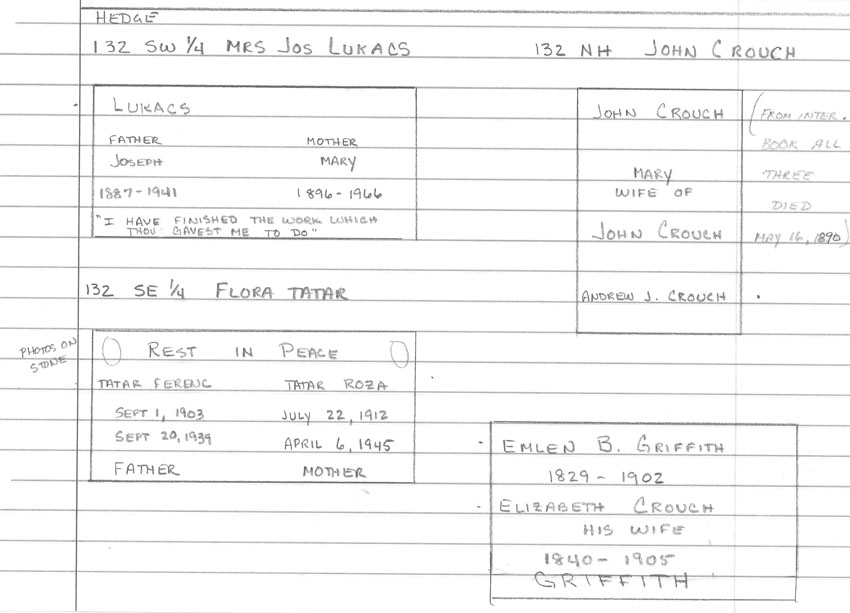 HEDGE
132 SW 1/4 MRS JOS LUKACS
132 NH JOHN CROUCH
LUKACS
FATHER MOTHER
JOSEPH MARY
1887-1941 1896-1966
"I HAVE FINISHED THE WORK WHICH
THOU GAVEST ME TO DO"
JOHN CROUCH
MARY
WIFE OF
JOHN CROUCH
ANDREW J. CROUCH
(FROM INTER.
BOOK ALL
THREE
DIED
MAY 16, 1890)
132 SE 1/4 FLORA TATAR
PHOTOS ON
STONE
REST IN PEACE
TATAR FERENC TATAR ROZA
SEPT 1, 1903 JULY 22, 1912
SEPT 20, 1939 APRIL 6, 1945
FATHER MOTHER
EMLEN B. GRIFFITH
1829 - 1902
ELIZABETH CROUCH
HIS WIFE
1840 - 1905
GRIFFITH